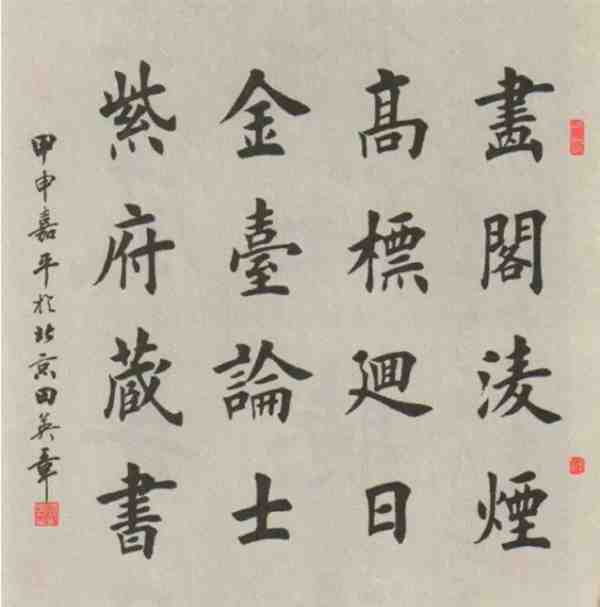 畫閣淩煙
高標迴日
金臺論士
紫府蔵書
甲申嘉平於北京田英章